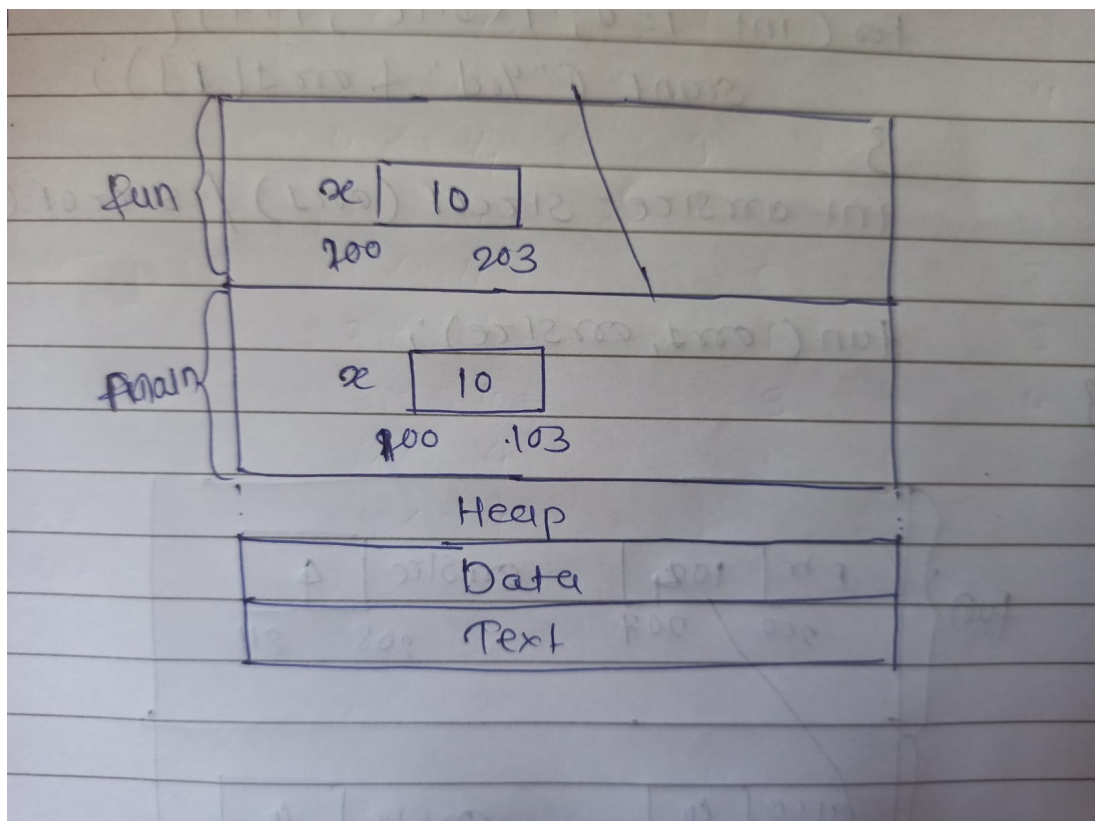 fun x 10
200 203
main x 10
100 103
Heap
Data
Text